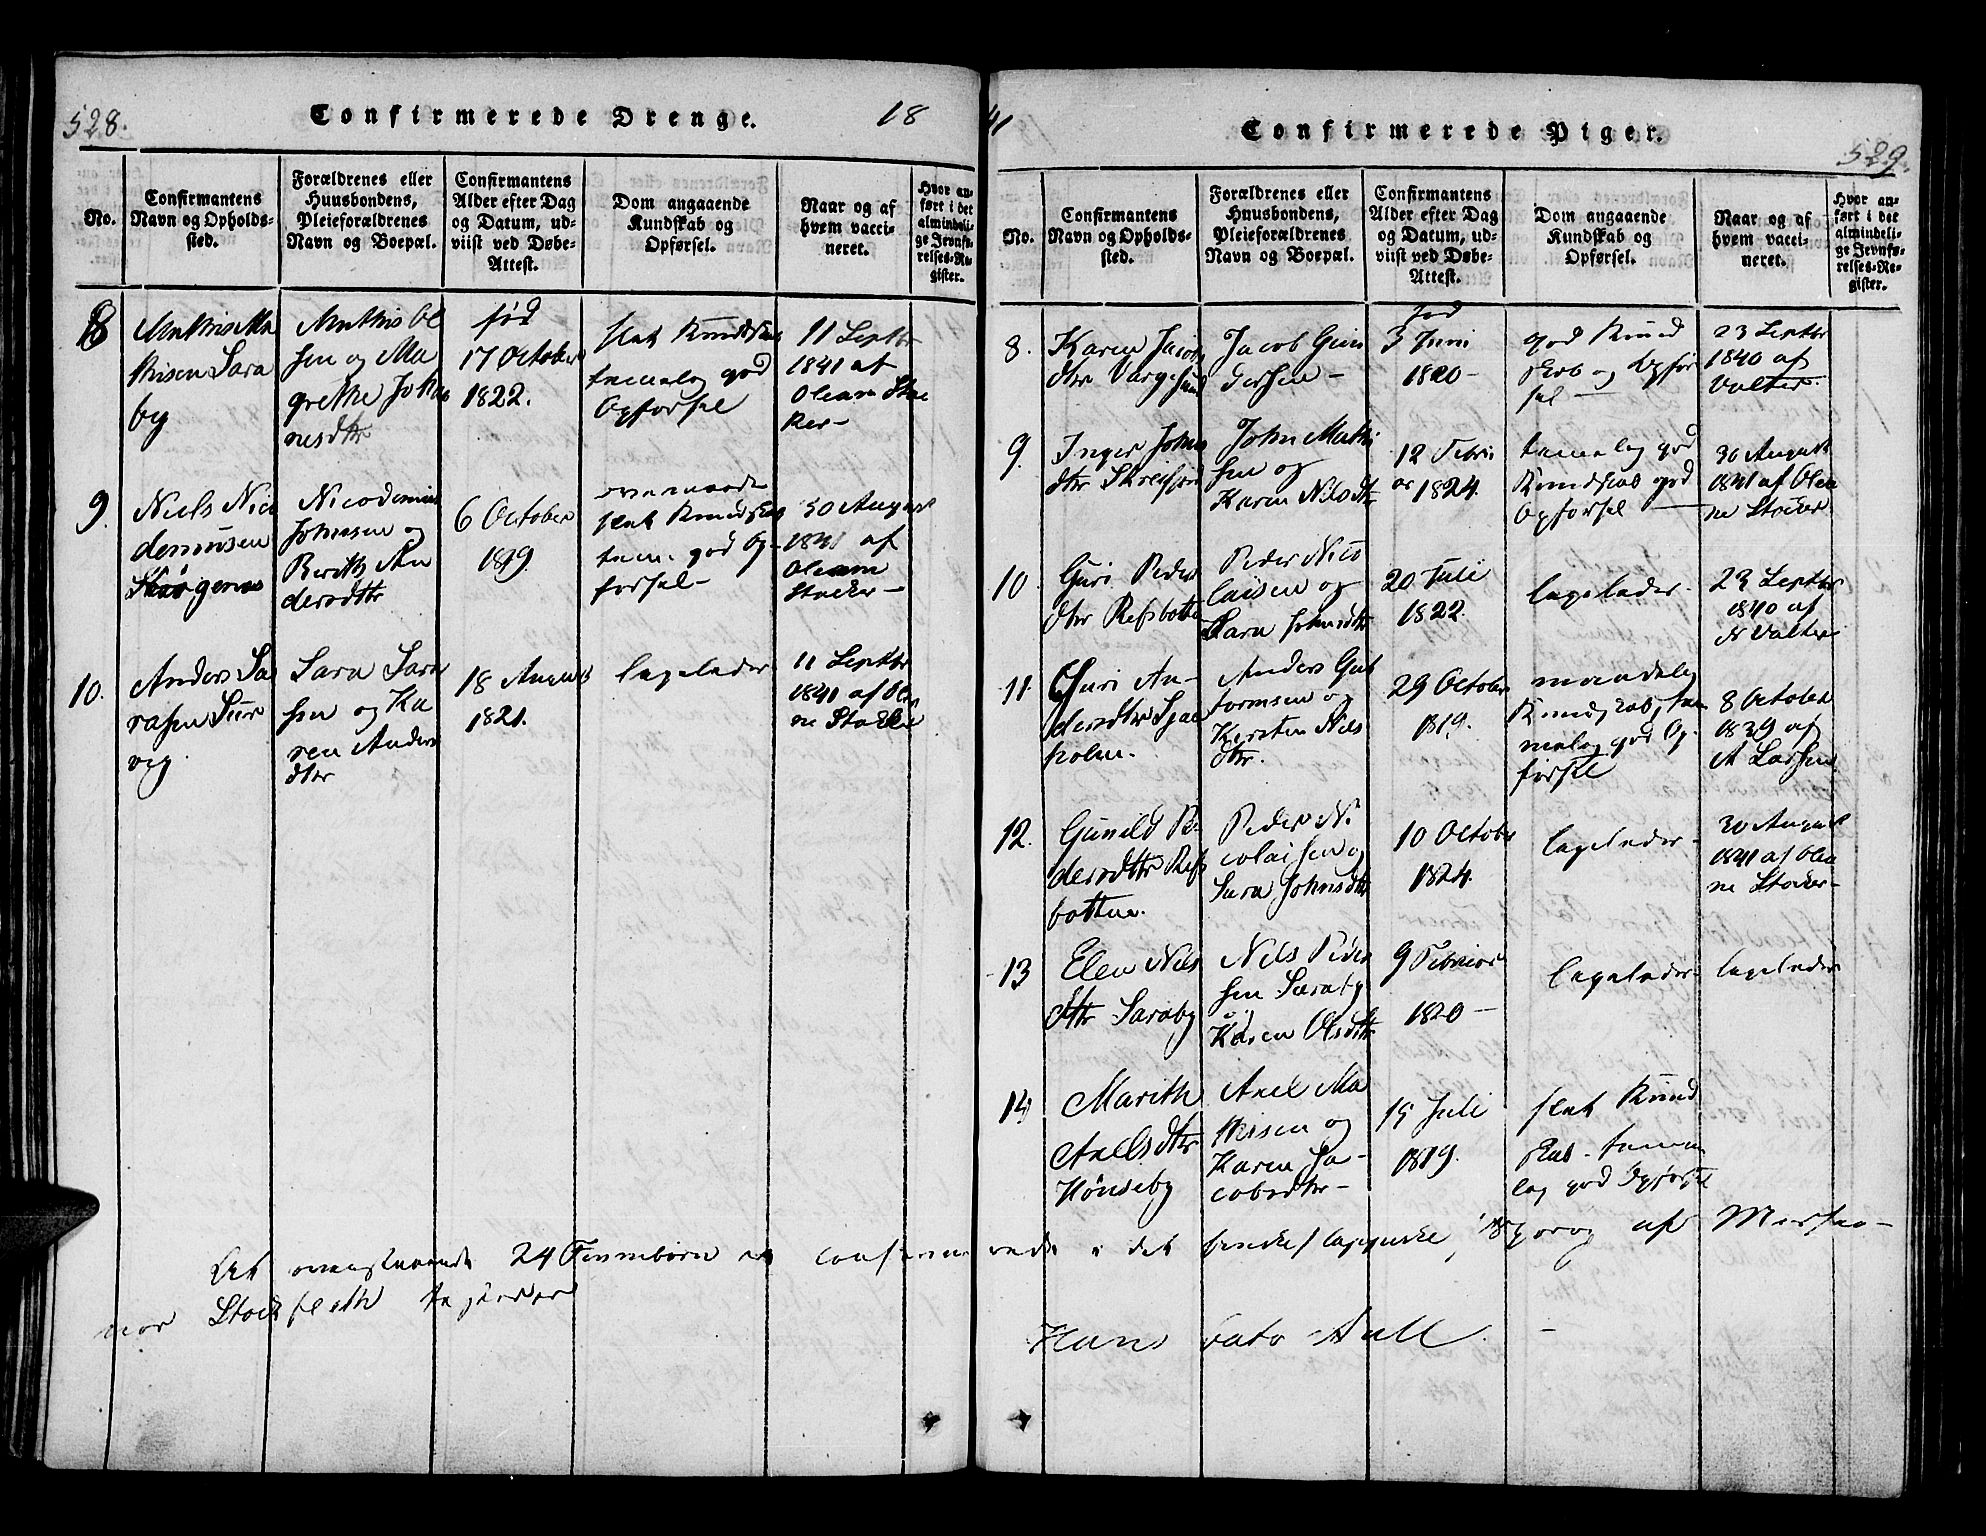 528.
Confirmerede Drenge.
18
No.
Confirmantens
Navn og Opholds-
sted.
Forældrenes eller
Huusbondens,
Pleieforældrenes
Navn og Boepæl.
Confirmantens
Alder efter Dag
og Datum, ud-
viist ved Døbe-
Attest.
Dom angaaende
Kundskab og
Opførsel.
Naar og af
hvem vacci-
neret.
Hvor an-
ført i det
almindeli-
ge Jevnfø-
relses-Re-
gister.
8
Mathis Ma
thisen Sara
by
Mathis Ol
sen og Ma
grethe Johan
nesdtr
fød
17 October
1822.
slet Kundskab
temelig god
Opførsel
11 Septbr
1841 af
Oleane Stoc
ker-
9.
Niels Nico
demusen
Nicodemus
Johnsen og
Berith An
dersdtr
6 October
1819.
overmaade
slet Kundskab
tem. god Op-
førsel-
30 August
1841 af
Stocker-
10.
Anders Sa
rasen Sur
vig
Sara Sara
sen og Ka
ren Anders
dtr
18 August
1821.
ligeledes
11 Septbr
1841 af Olea
ne Stocker
41
Confirmerede Piger.
529.
No.
Confirmantens
Navn og Opholds-
sted.
Forældrenes eller
Huusbondens,
Pleieforældrenes
Navn og Boepæl.
Confirmantens
Alder efter Dag
og Datum, ud-
viist ved Døbe-
Attest.
Dom angaaende
Kundskab og
Opførsel.
Naar og af
hvem vacci-
neret.
Hvor an-
ført i det
almindeli-
ge Jevnfø-
relses-Re-
gister.
8.
Karen Jacobs
dtr Vargsund
Jacob Gun
dersen-
fød
3 Juni
1820-
god Kund
skab og Opfør
sel-
23 Septbr
1840 af
Valter.
9.
Inger Johns
dtr Skreifjord
John Mathi
sen og
Karen Nilsdtr
12 Febru
ar 1824.
temelig god
Kundskab god
Opførsel-
30 August
1841 af Olea
ne Stocker
10.
Guri Peders
dtr Refsbotten
Peder Nico
laisen og
Sara Johnsdtr
20 Juli
1822.
ligeledes-
23 Septbr
1840 af
N Valter
11.
Guri An-
dersdtr Sjaa
holm.
Anders Gut
tormsen og
Kirsten Nils
dtr.
29 October
1819.
maadelig
Kundskab, tem
melig god Op-
førsel
8 October
1839 af
A Larsen
12.
Gunild Pe
dersdtr Refs
botten.
Peder Ni
colaisen og
Sara Johnsdtr
10 October
1824.
ligeledes-
30 August
1841 af Olea
ne Stocker-
13
Elen Nils
dtr Saraby
Nils Peder
sen Saraby
Karen Olsdtr
9 Februar
1820-
ligeledes-
ligeledes
14
Marith
Axelsdtr
Kønseby
Axel Ma
thisen og
Karen Ja-
cobsdtr-
15 Juli
1819.
slet Kund
skab- temme
lig god Opførsel
At ovenstaaende 24 Finnebørn er confirme rede i det finske/lappiske/ Sprog af Missio-
nær Stockfleth
Hans Aall.